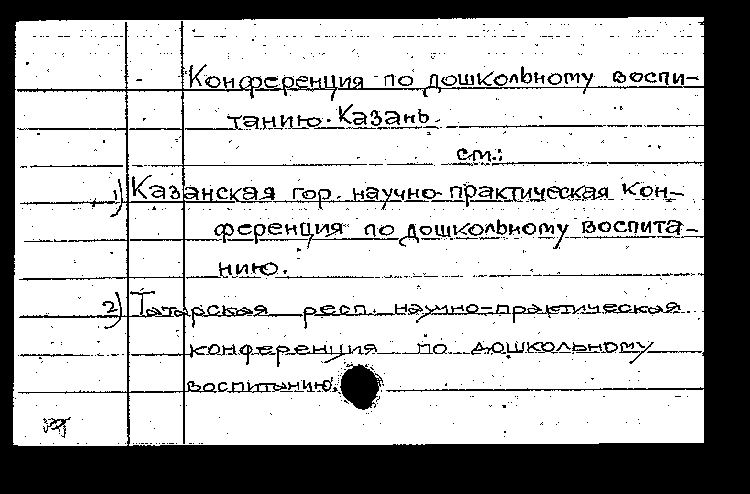 Конференция по дошкольному воспи-
танию. Казань.
см.:
1) Казанская гор. научно-практическая кон-
ференция по дошкольному воспита-
нию.
2) Татарская респ. научно-практическая
конференция по дошкольному
воспитанию.